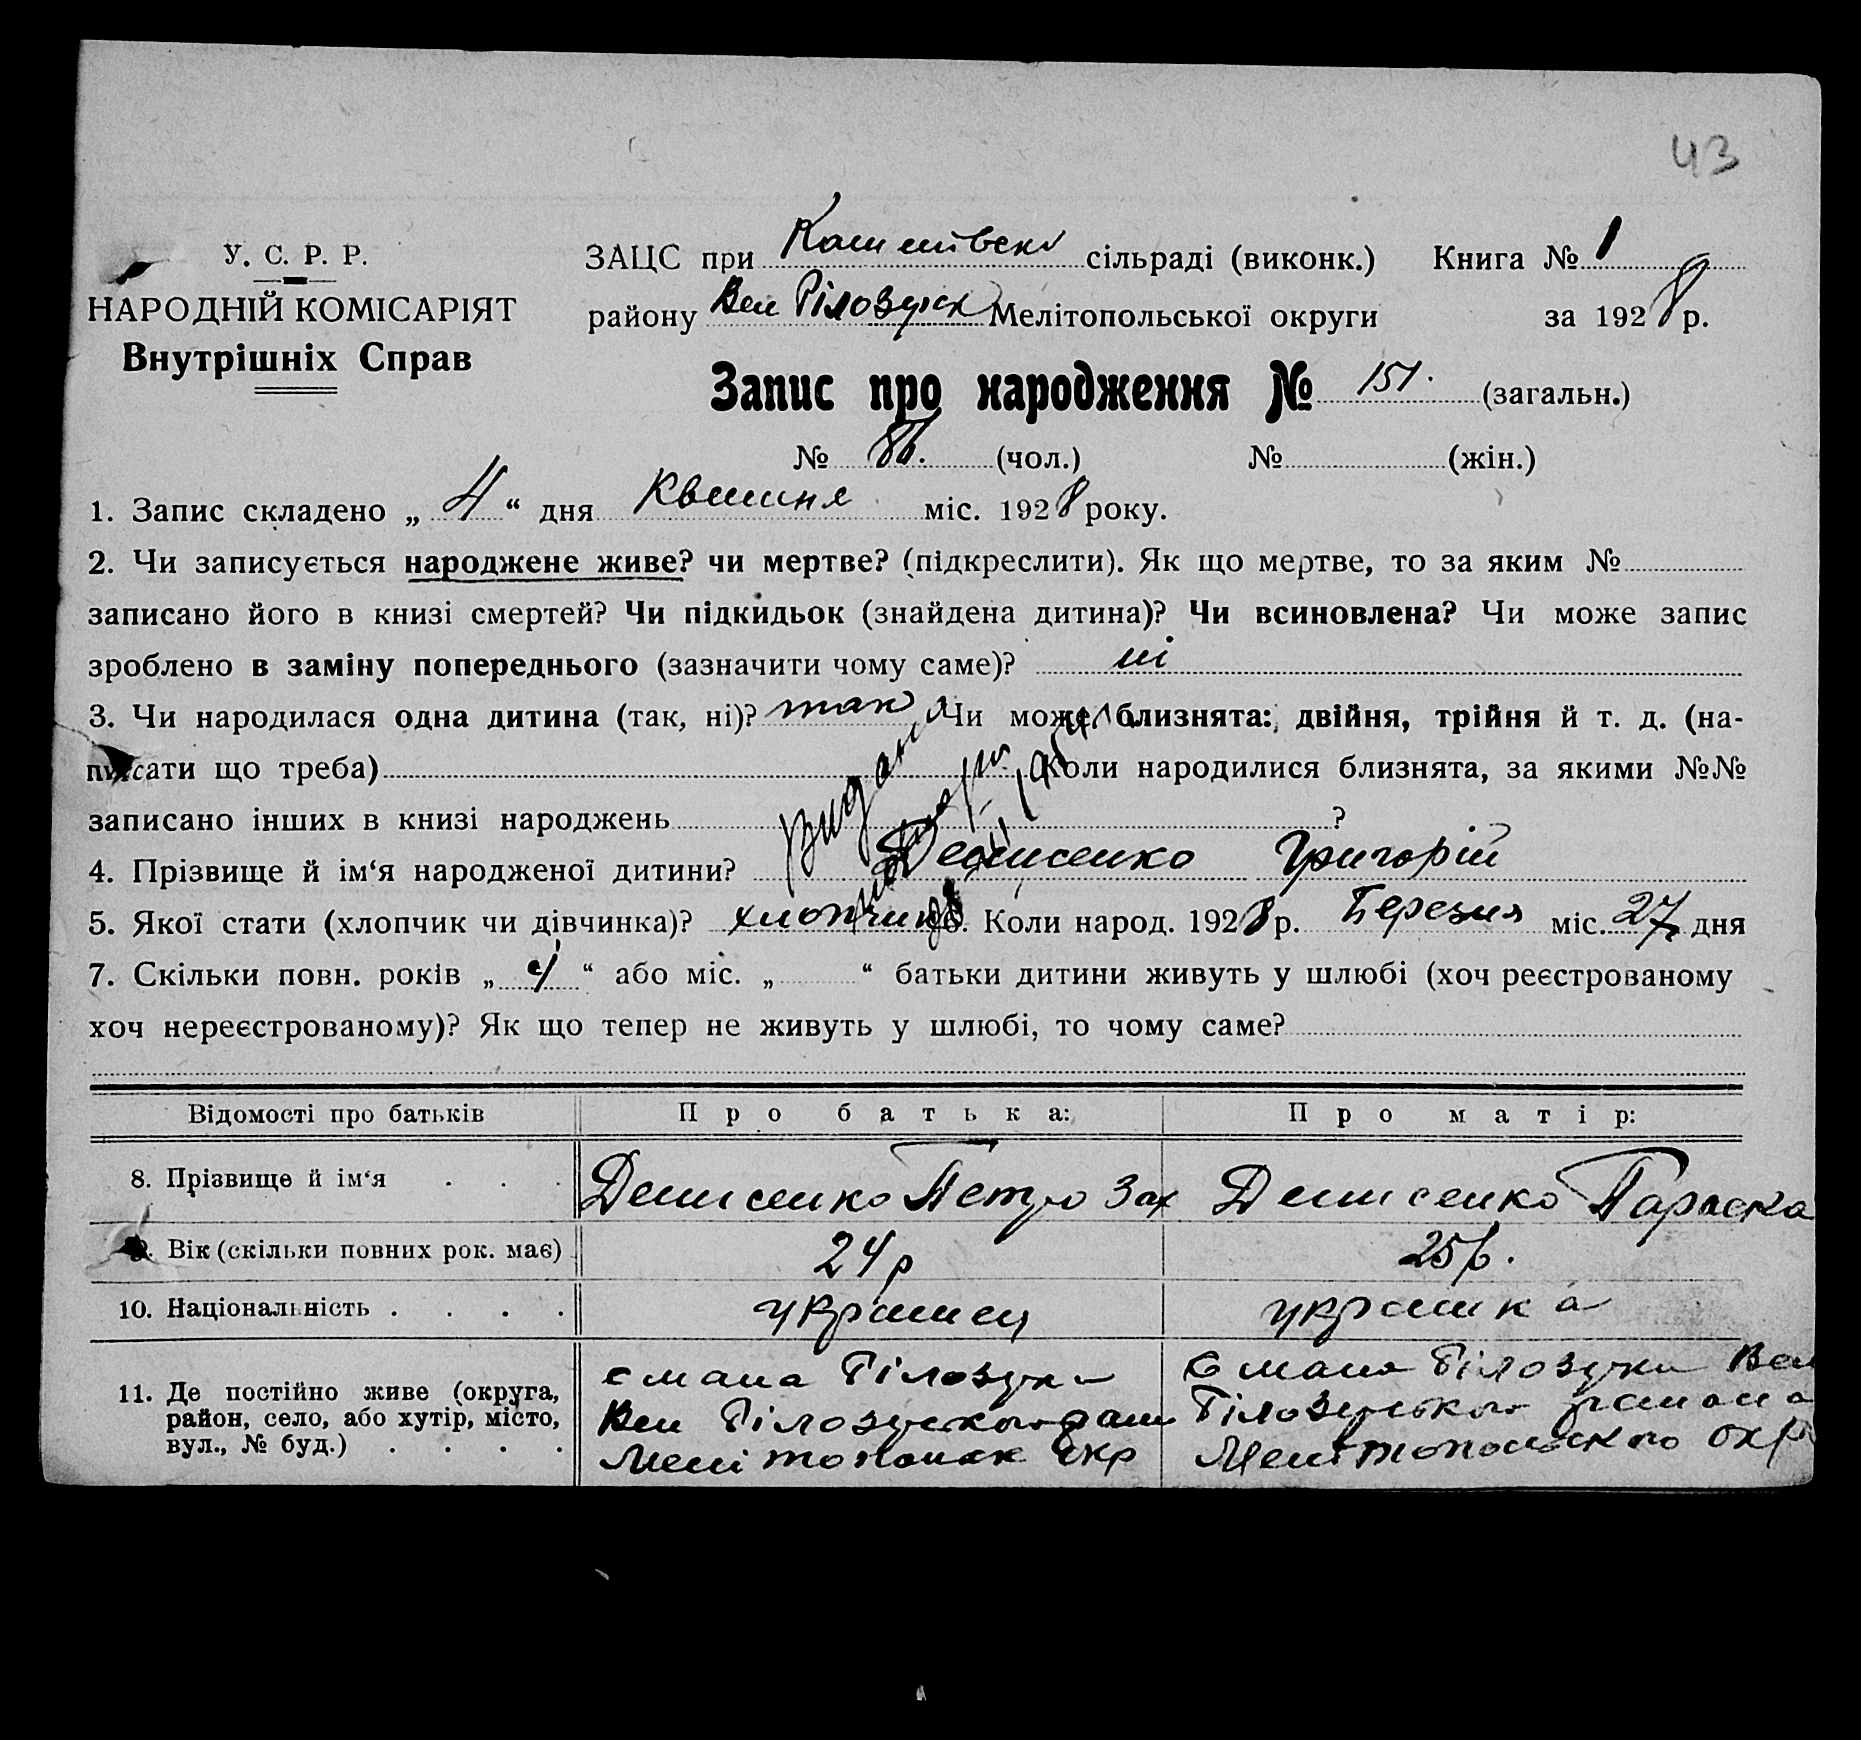 43
У. С. Р. Р.
НАРОДНІЙ КОМІСАРІЯТ
Внутрішніх Справ
ЗАЦС при сільраді (виконк.) Книга № 1
району Вел Білозерск Мелітопольської округи за 1928 р.
Запис про народження № 151. (загальн.)
№ 86. (чол.) № (жін.)
1. Запис складено „ 4 “ дня Квитня міс. 1928 року.
2. Чи записується народжене живе? чи мертве? (підкреслити). Як що мертве, то за яким №
записано його в книзі смертей? Чи підкидьок (знайдена дитина)? Чи всиновлена? Чи може запис
зроблено в заміну попереднього (зазначити чому саме)? ні
3. Чи народилася одна дитина (так, ні)? так Чи може близнята: двійня, трійня й т. д. (на-
писати що треба) Коли народилися близнята, за якими №№
записано інших в книзі народжень ?
4. Прізвище й ім‘я народженої дитини? Денисенко Григорій
5. Якої стати (хлопчик чи дівчинка)? хлопчик 6. Коли народ. 1928 р. Березня міс. 27 дня
7. Скільки повн. років „ 4 “ або міс. „ “ батьки дитини живуть у шлюбі (хоч реєстрованому
хоч нереєстрованому)? Як що тепер не живуть у шлюбі, то чому саме?
Відомості про батьків Про батька: Про матір:
8. Прізвище й ім‘я . . . Денисенко Петро Зах Денисенко Параска
9. Вік (скільки повних рок. має) 24 р 25 р.
10. Національність . . . . українец українка
11. Де постійно живе (округа, район, село, або хутір, місто, вул., № буд.) . . . .
Мелітопольск Окр
Мелітопольского Окр